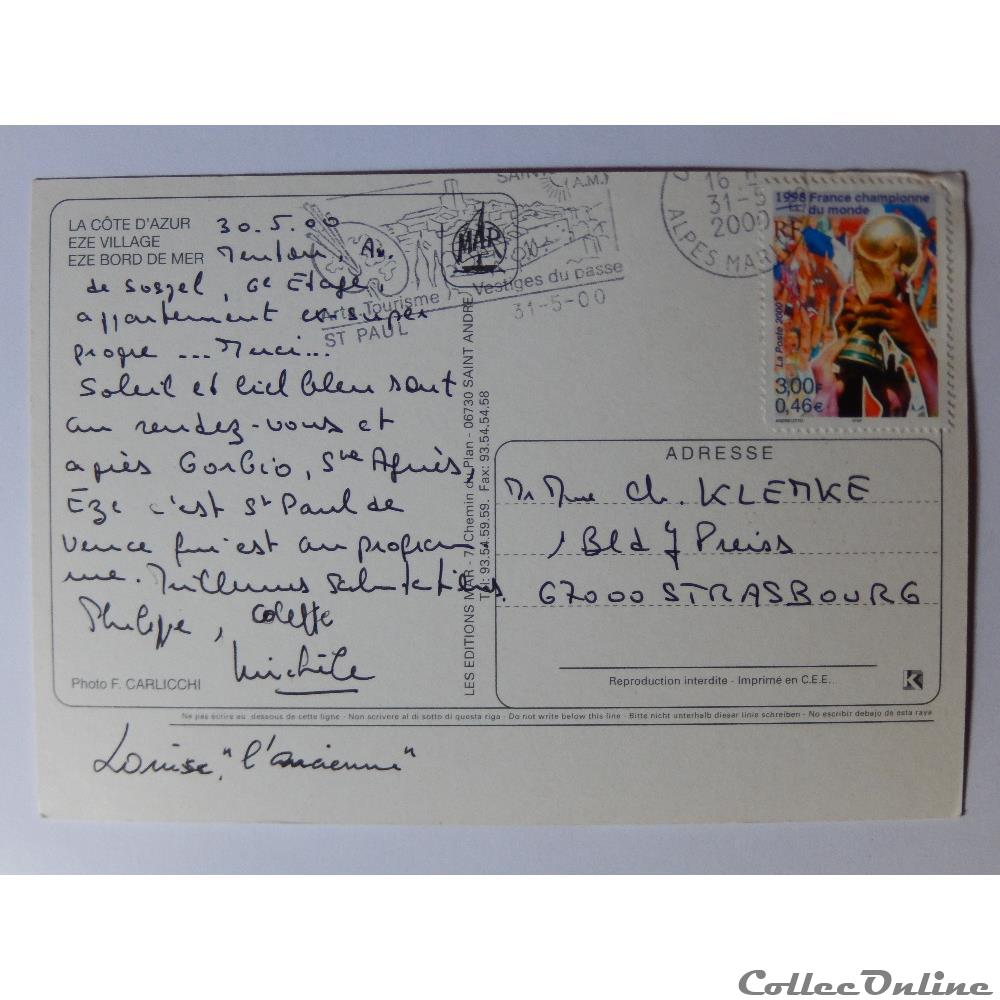 LA CÔTE D'AZUR
EZE VILLAGE
EZE BORD DE MER
30.5.00
Menton, Av.
de Sospel, 6e Etage,
appartement en super
propre ... Merci...
Soleil et ciel bleu sont
au rendez-vous et
après Gorbio, Ste Agnès,
Eze c'est St Paul de
Vence qui est au program-
me.
Philippe, Colette
Michèle
Photo F. CARLICCHI
Louise, "l'ancienne"
SAINT
(A.M.)
Arts Tourisme
Vestiges du passe
ST PAUL
31-5-00
MAR
LES EDITIONS MAR - 7, Chemin du Plan - 06730 SAINT ANDRE
Tél: 93.54.59.59. Fax: 93.54.54.58
16 H
31-5
2000
ALPES MAR
1998 France championne
du monde
RF
La Poste 2000
3,00F
0,46€
ADRESSE
Mr Mme Ch. KLEMKE
1 Bld J Preiss
67000 STRASBOURG
Reproduction interdite - Imprimé en C.E.E.
K
Ne pas écrire au dessous de cette ligne - Non scrivere al di sotto di questa riga - Do not write below this line - Bitte nicht unterhalb dieser linie schreiben - No escribir debajo de esta raya
CollecOnline